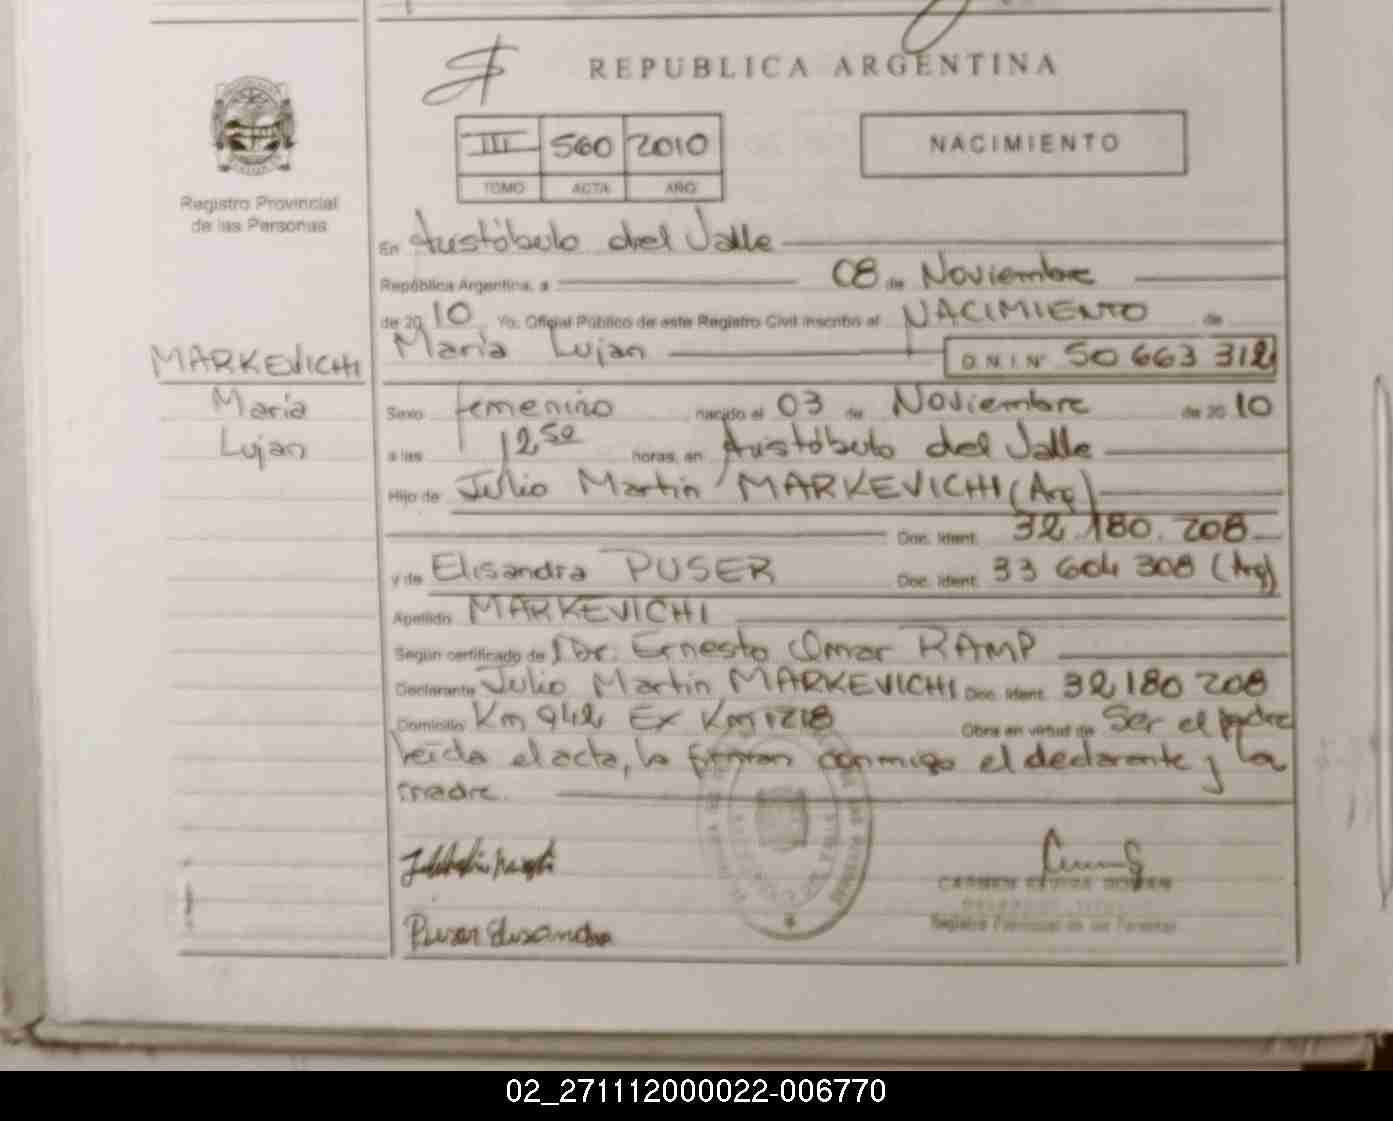 REPUBLICA ARGENTINA
III 560 2010
TOMO ACTA AÑO
NACIMIENTO
Registro Provincial
de las Personas
En Aristóbulo del Valle
República Argentina, a 08 de Noviembre
de 2010 Yo, Oficial Público de este Registro Civil inscribo el NACIMIENTO de
María Lujan D.N.I.Nº 50 663 312
MARKEVICHI
María
Lujan
Sexo femenino nacido el 03 de Noviembre de 2010
a las 12 50 horas, en Aristóbulo del Valle
Hijo de Julio Martin MARKEVICHI (Arg)
Doc. Ident. 32.180.208
y de Elisandra PUSER Doc. Ident. 33 604 308 (Arg)
Apellido MARKEVICHI
Según certificado de Dr. Ernesto Omar RAMP
Declarante Julio Martin MARKEVICHI Doc. Ident. 32 180 208
Domicilio Km 942 Ex Km 1218 Obra en virtud de Ser el padre
leída el acta, la firman conmigo el declarante y la
madre.
Puser Elisandra
CARMEN
Registro Provincial de las Personas
02_271112000022-006770